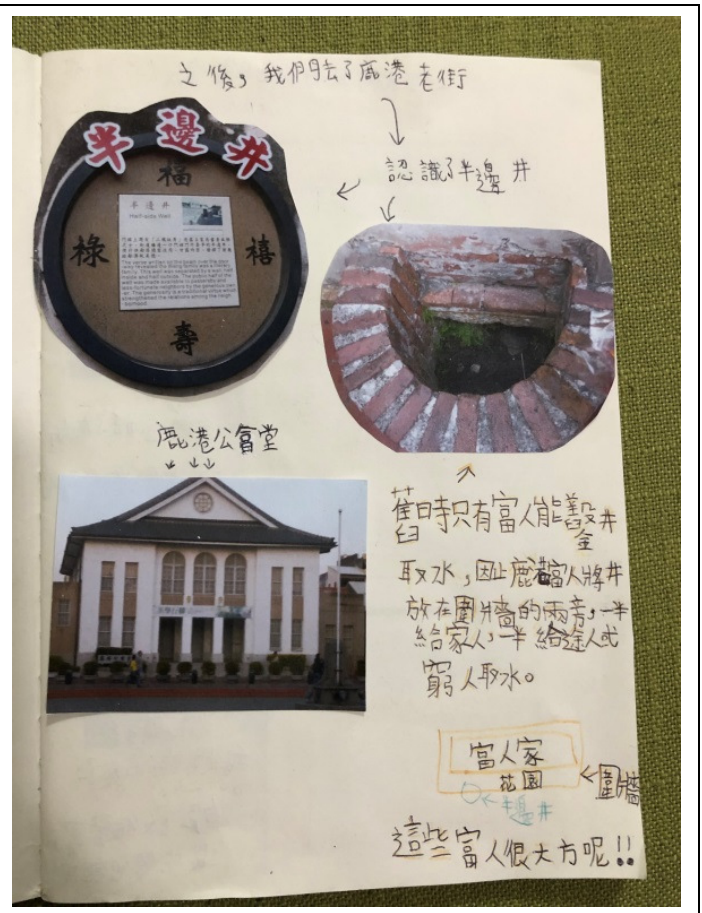 之後，我們去了鹿港老街
認識了半邊井
半邊井
福
祿
禧
壽
半邊井
Half-side Well
鹿港公會堂
舊時只有富人能鑿井
取水，因此鹿港富人將井
放在圍牆的兩旁，一半
給家人，一半給途人或
窮人取水。
富人家
花園
圍牆
半邊井
這些富人很大方呢!!